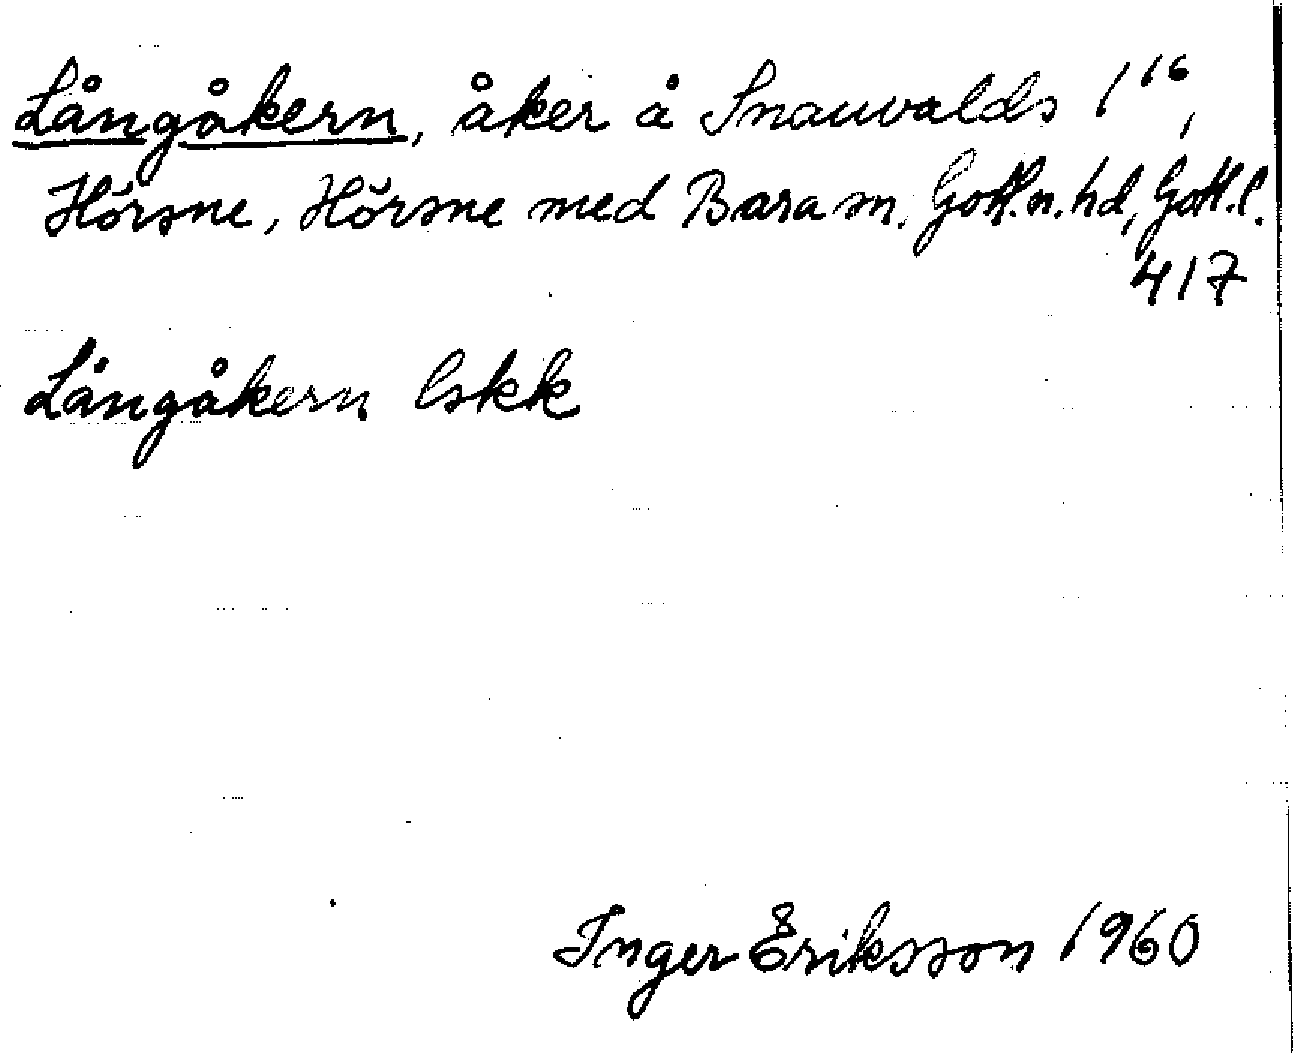 Långåkern, åker å Snauvalds 1¹⁶,
Hörsne, Hörsne med Bara sn, Gotl.n.hd, Gotl.l.
417
Långåkern lskk
Inger Eriksson 1960